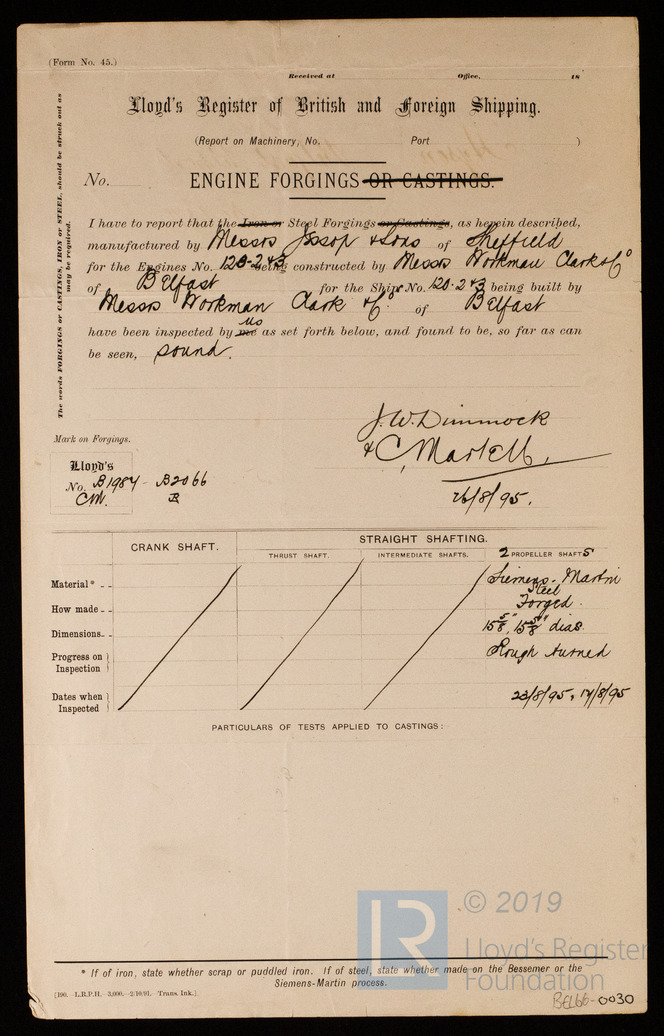 (Form No. 45.)
Received at Office, 18
Lloyd's Register of British and Foreign Shipping.
(Report on Machinery, No. Port )
No. ENGINE FORGINGS OR CASTINGS.
The words FORGINGS or CASTINGS, IRON or STEEL, should be struck out as may be required.
I have to report that the Iron or Steel Forgings or Castings, as herein described,
manufactured by Messrs Jessop & Sons of Sheffield
for the Engines No. 120-2&3 being constructed by Messrs Workman Clark & Co
of Belfast for the Ship No. 120-2&3 being built by
Messrs Workman Clark & Co of Belfast
have been inspected by me us as set forth below, and found to be, so far as can
be seen, sound.
J. W. Dimmock
& C. Martell,
26/8/95.
Mark on Forgings.
Lloyd's
No. B1984 - B2066
CM. B
CRANK SHAFT. STRAIGHT SHAFTING.
THRUST SHAFT. INTERMEDIATE SHAFTS. 2 PROPELLER SHAFTS
Material* - - Siemens-Martin Steel
How made - - Forged.
Dimensions - - 15 5/8", 15 5/8" dias.
Progress on Inspection Rough turned
Dates when Inspected 23/8/95, 17/8/95
PARTICULARS OF TESTS APPLIED TO CASTINGS:
© 2019
LR
Lloyd's Register
Foundation
* If of iron, state whether scrap or puddled iron. If of steel, state whether made on the Bessemer or the
Siemens-Martin process.
[190. -L.R.P.H. -3,000. -2/10/91. Trans. Ink.]
BEL66-0030